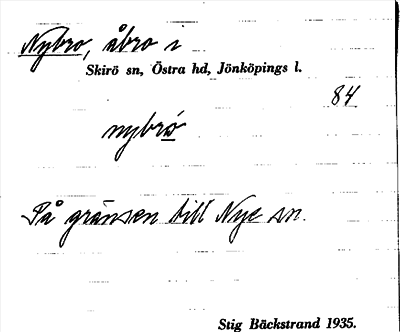 Nybro, åbro i
Skirö sn, Östra hd, Jönköpings l.
84
nybro
På gränsen till Nye sn.
Stig Bäckstrand 1935.